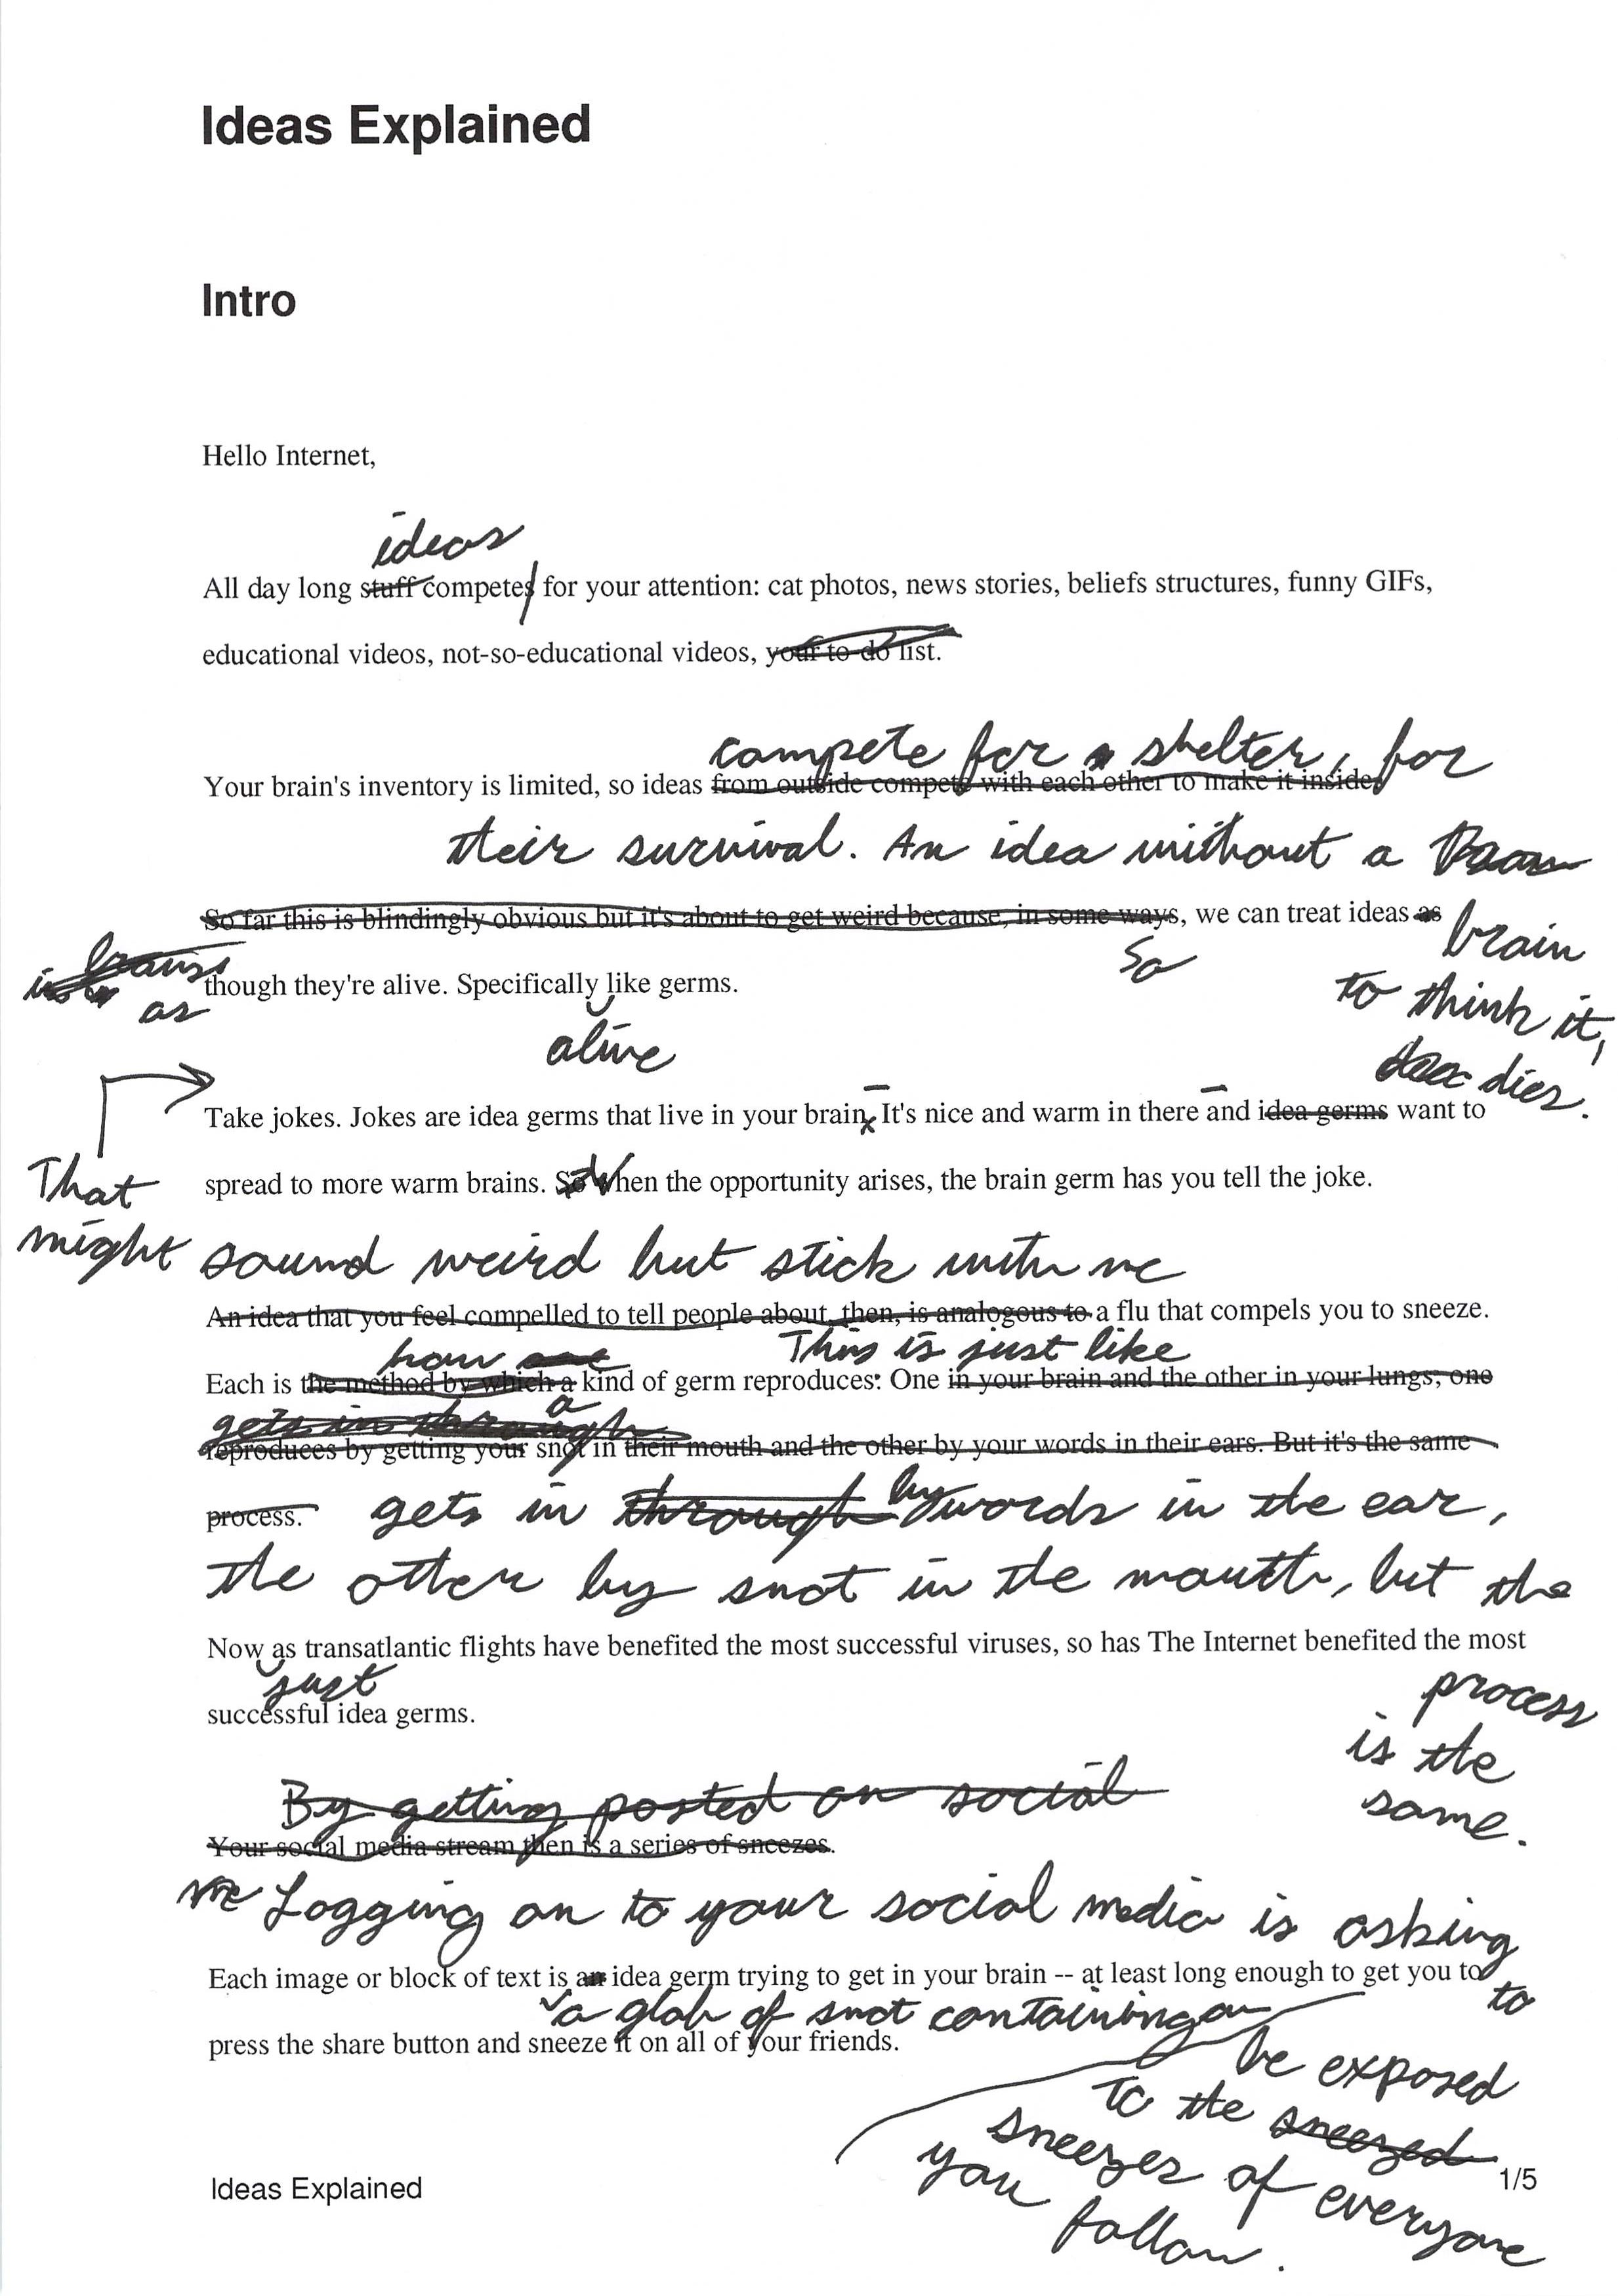 Ideas Explained
Intro
Hello Internet,
ideas
All day long stuff competes for your attention: cat photos, news stories, beliefs structures, funny GIFs,
educational videos, not-so-educational videos, your to-do list.
compete for shelter, for
Your brain's inventory is limited, so ideas from outside compete with each other to make it inside.
their survival. An idea without a
So far this is blindingly obvious but it's about to get weird because, in some ways, we can treat ideas as
brain
So
to think it,
dies.
brains
as
though they're alive. Specifically like germs.
alive
Take jokes. Jokes are idea germs that live in your brain. It's nice and warm in there and idea germs want to
That
spread to more warm brains. So When the opportunity arises, the brain germ has you tell the joke.
might sound weird but stick with me
An idea that you feel compelled to tell people about, then, is analogous to a flu that compels you to sneeze.
how
This is just like
Each is the method by which a kind of germ reproduces: One in your brain and the other in your lungs; one
a
gets in through
reproduces by getting your snot in their mouth and the other by your words in their ears. But it's the same
process. gets in through by words in the ear,
the other by snot in the mouth, but the
Now as transatlantic flights have benefited the most successful viruses, so has The Internet benefited the most
just
successful idea germs.
process
is the
same.
By getting posted on social
Your social media stream then is a series of sneezes.
Logging on to your social media is asking
Each image or block of text is an idea germ trying to get in your brain -- at least long enough to get you to
to
a glob of snot containing an
press the share button and sneeze it on all of your friends.
be exposed
to the sneezed
sneezes of everyone
you follow.
Ideas Explained
1/5